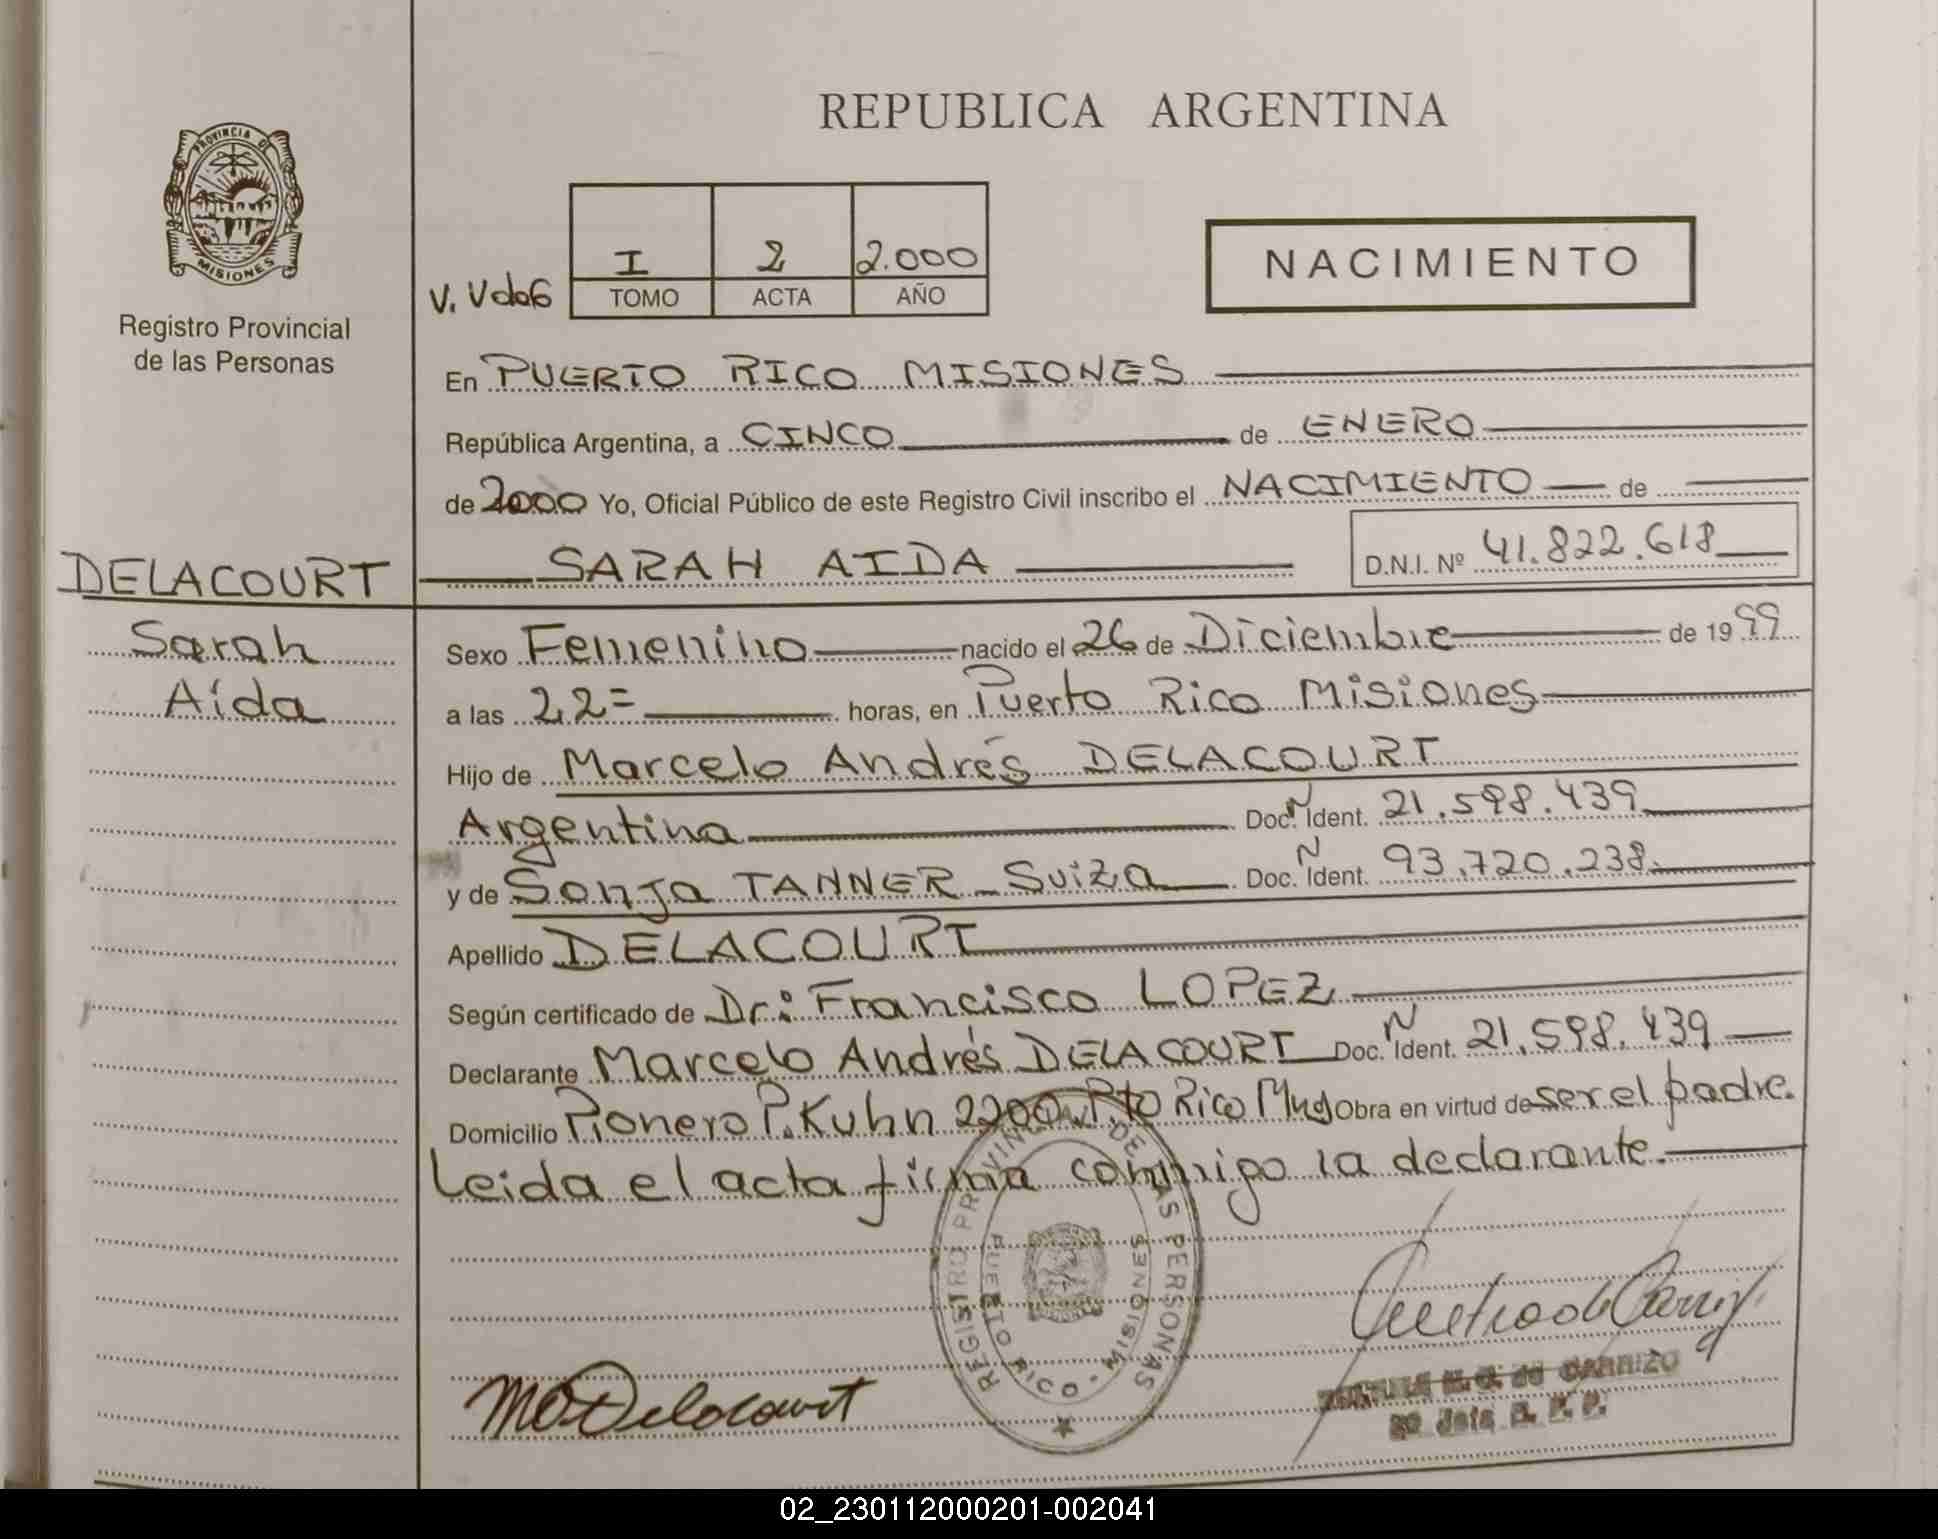 REPUBLICA ARGENTINA
PROVINCIA DE
MISIONES
Registro Provincial
de las Personas
V. Vda6
I 2 2.000
TOMO ACTA AÑO
NACIMIENTO
En PUERTO RICO MISIONES
República Argentina, a CINCO de ENERO
de 2000 Yo, Oficial Público de este Registro Civil inscribo el NACIMIENTO de
DELACOURT SARAH AIDA D.N.I. Nº 41.822.618
Sarah
Aída
Sexo Femenino nacido el 26 de Diciembre de 1999
a las 22= horas, en Puerto Rico Misiones
Hijo de Marcelo Andrés DELACOURT
Argentina Doc. N Ident. 21.598.439
y de Sonja TANNER - Suiza Doc. N Ident. 93.720.238.
Apellido DELACOURT
Según certificado de Dr: Francisco LOPEZ
Declarante Marcelo Andrés DELACOURT Doc. N Ident. 21.598.439
Domicilio Pionero P. Kuhn 2200 Pto Rico Mnes Obra en virtud de ser el padre.
Leida el acta firma conmigo la declarante.
REGISTRO PROVINCIAL DE LAS PERSONAS
PUERTO RICO - MISIONES
M Delacourt
de CARRIZO
02_230112000201-002041